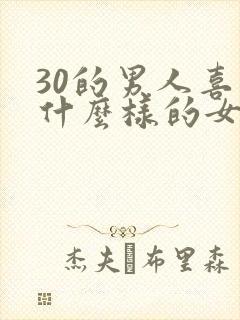 30的男人喜
什麼樣的女
杰夫·布里森